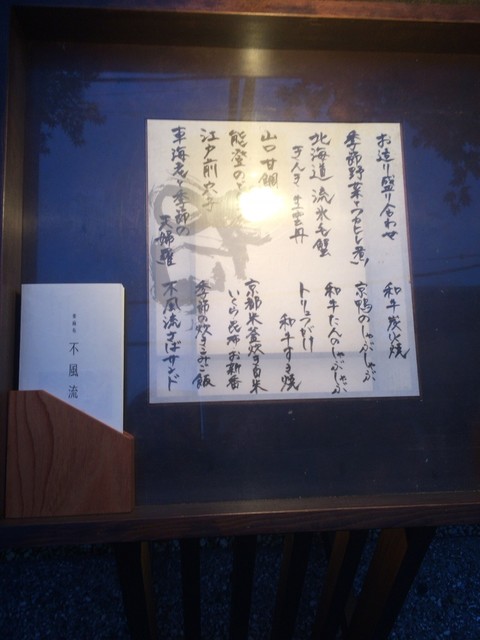 お造り盛り合わせ
季節野菜とフカヒレ煮
北海道 流氷毛蟹
きんき 生雲丹
山口 甘鯛
能登の
江戸前穴子
車海老と季節の
天婦羅
和牛炭火焼
京鴨のしゃぶしゃぶ
和牛たんのしゃぶしゃぶ
トリュフがけ
和牛すき焼
京都米釜炊き白米
いくら 昆布 お新香
季節の炊きこみご飯
不風流さばサンド
不風流